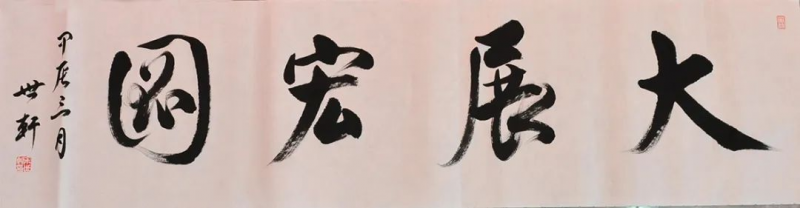 大展宏圖
甲辰三月
世軒